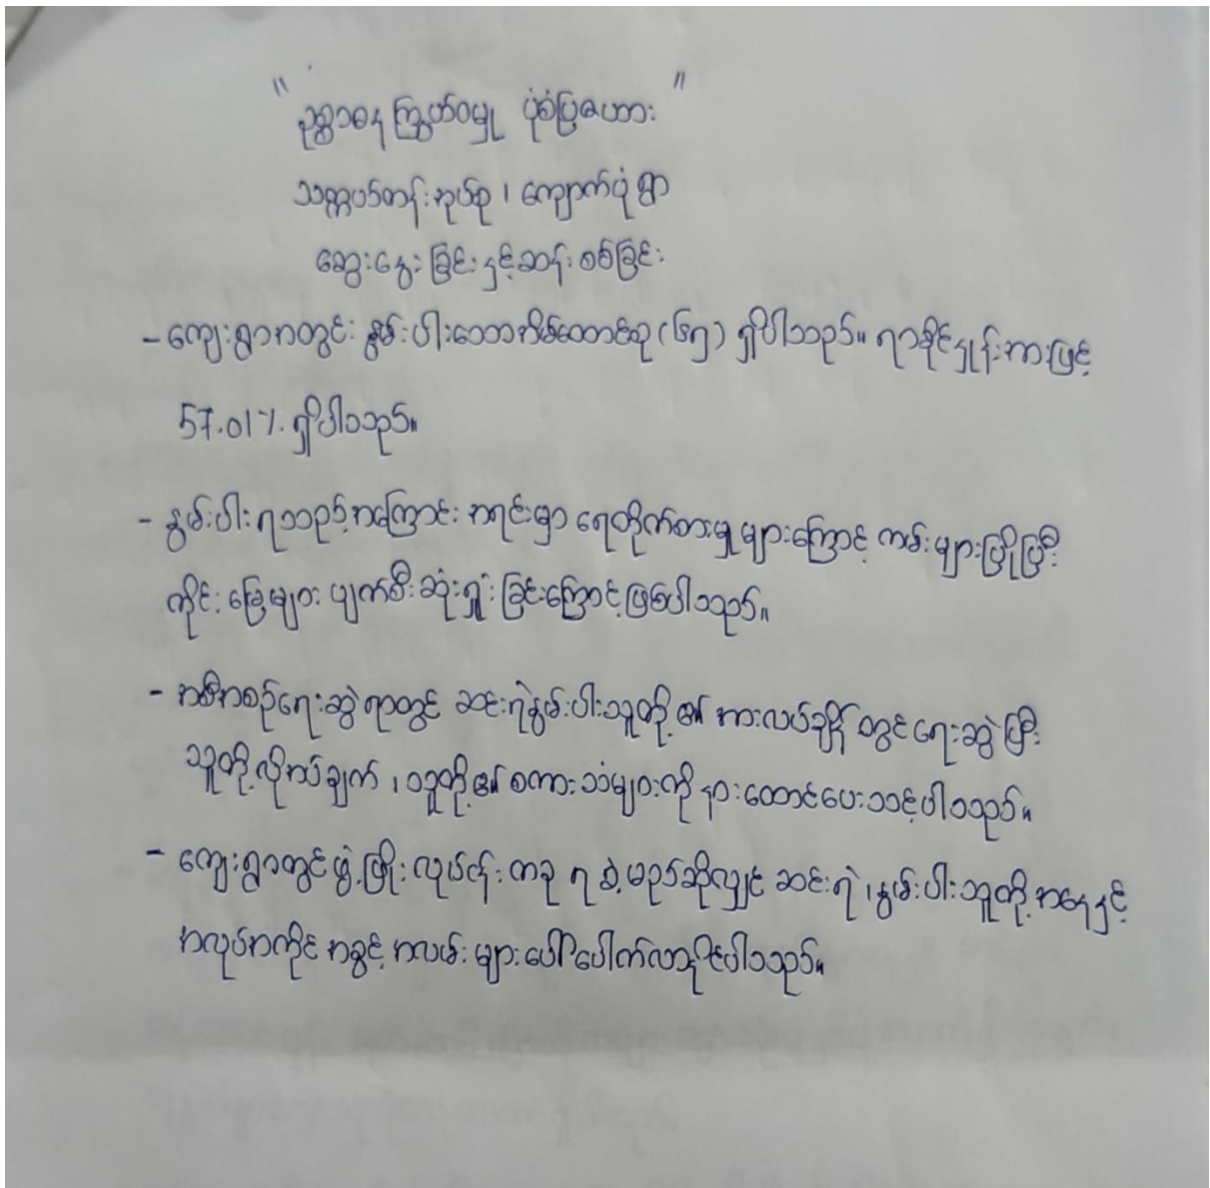 " ဥစ္စာဓန ကြွယ်ဝမှု ပုံစံပြဇယား "
သက္ကယ်တန်းအုပ်စု ၊ ကျောက်ပုံရွာ
ဆွေးနွေးခြင်းနှင့်ဆန်းစစ်ခြင်း
- ကျေးရွာတွင်း နွမ်းပါးသောအိမ်ထောင်စု (၆၅) ရှိပါသည်။ ရာခိုင်နှုန်းအားဖြင့်
57.01%. ရှိပါသည်။
- နွမ်းပါးရသည့်အကြောင်းအရင်းမှာ ရေတိုက်စားမှုများကြောင့် ကမ်းများပြိုပြီး
ကိုင်းမြေများ ပျက်စီးဆုံးရှုံးခြင်းကြောင့်ဖြစ်ပါသည်။
- အစီအစဉ်ရေးဆွဲရာတွင် ဆင်းရဲနွမ်းပါးသူတို့၏ အားလပ်ချိန်တွင်ရေးဆွဲပြီး
သူတို့လိုအပ်ချက် ၊ သူတို့၏စကားသံများကို နားထောင်ပေးသင့်ပါသည်။
- ကျေးရွာတွင်ဖွံ့ဖြိုးလုပ်ငန်းတခု ရခဲ့မည်ဆိုလျှင် ဆင်းရဲ ၊ နွမ်းပါးသူတို့အနေနှင့်
အလုပ်အကိုင်အခွင့်အလမ်းများပေါ်ပေါက်လာနိုင်ပါသည်။